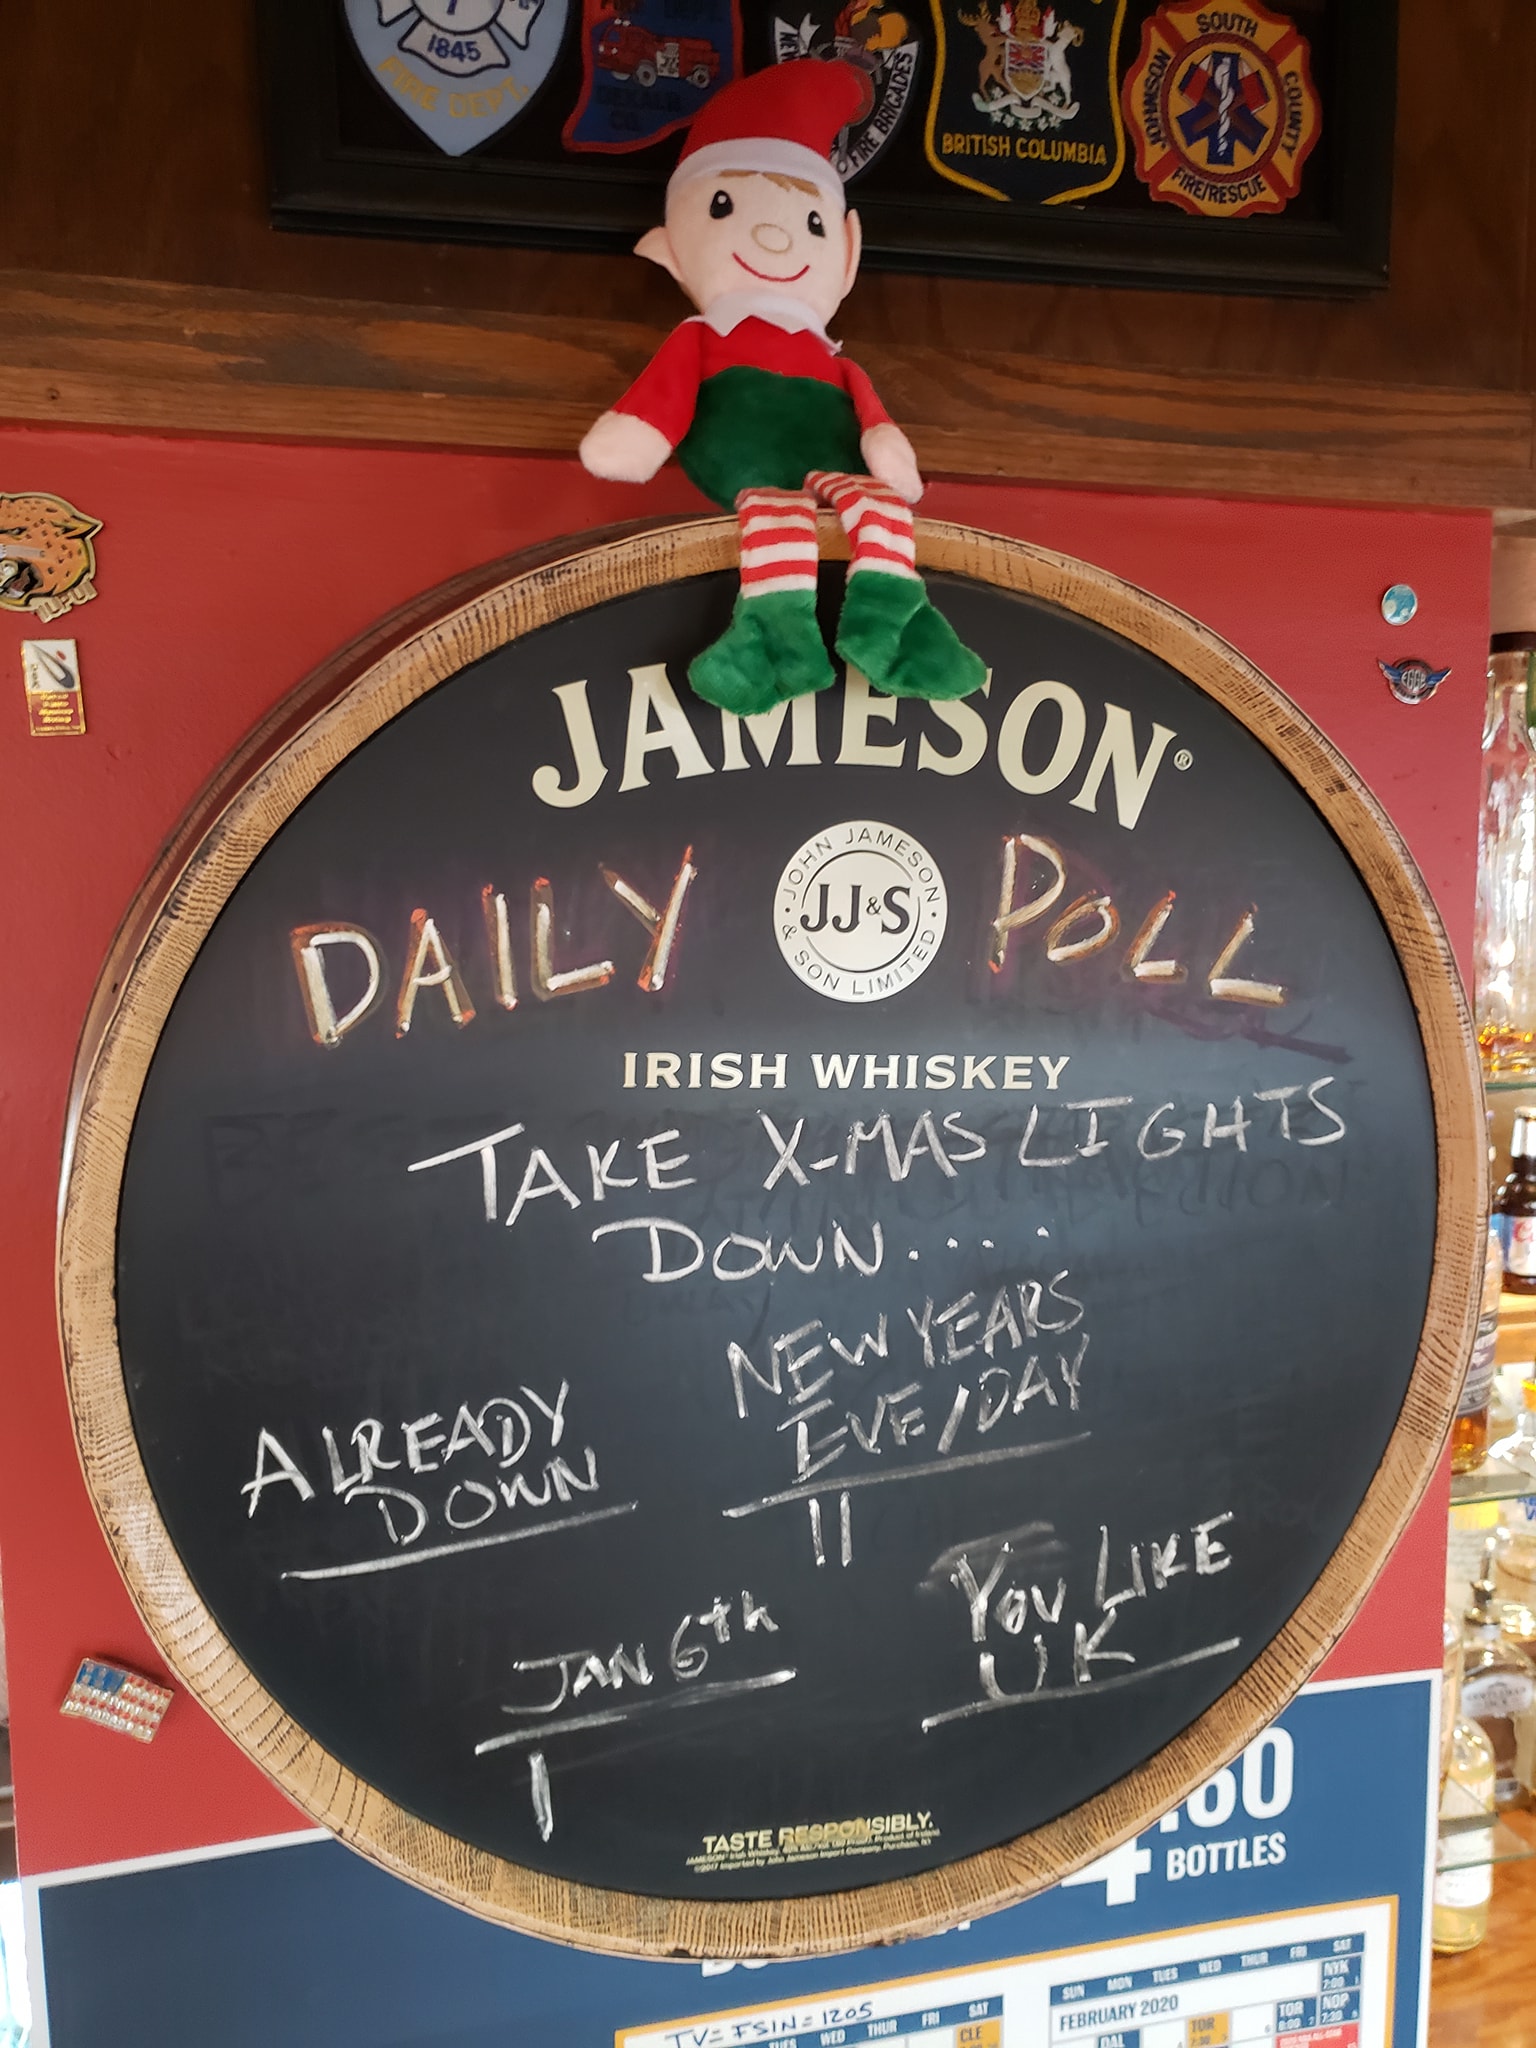 1845
FIRE DEPT.
FIRE BRIGADES
BRITISH COLUMBIA
SOUTH
JOHNSON COUNTY
FIRE/RESCUE
JAMESON®
DAILY POLL
JOHN JAMESON
JJ&S
& SON LIMITED
IRISH WHISKEY
TAKE X-MAS LIGHTS
DOWN....
NEW YEARS
EVE/DAY
II
ALREADY
DOWN
JAN 6th
I
YOU LIKE
UK
TASTE RESPONSIBLY.
.60
4
BOTTLES
TV=FSIN=1205
TUES WED THUR FRI SAT
CLE
SUN MON TUES WED THUR FRI SAT
FEBRUARY 2020
NYK
7:00
DAL
TOR
7:30
TOR
6:00
NOP
7:30